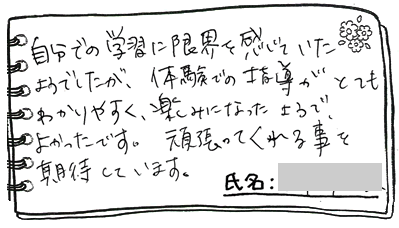 自分での学習に限界を感じていた
ようでしたが、体験での指導がとても
わかりやすく、楽しみになったようで、
よかったです。頑張ってくれる事を
期待しています。
氏名：